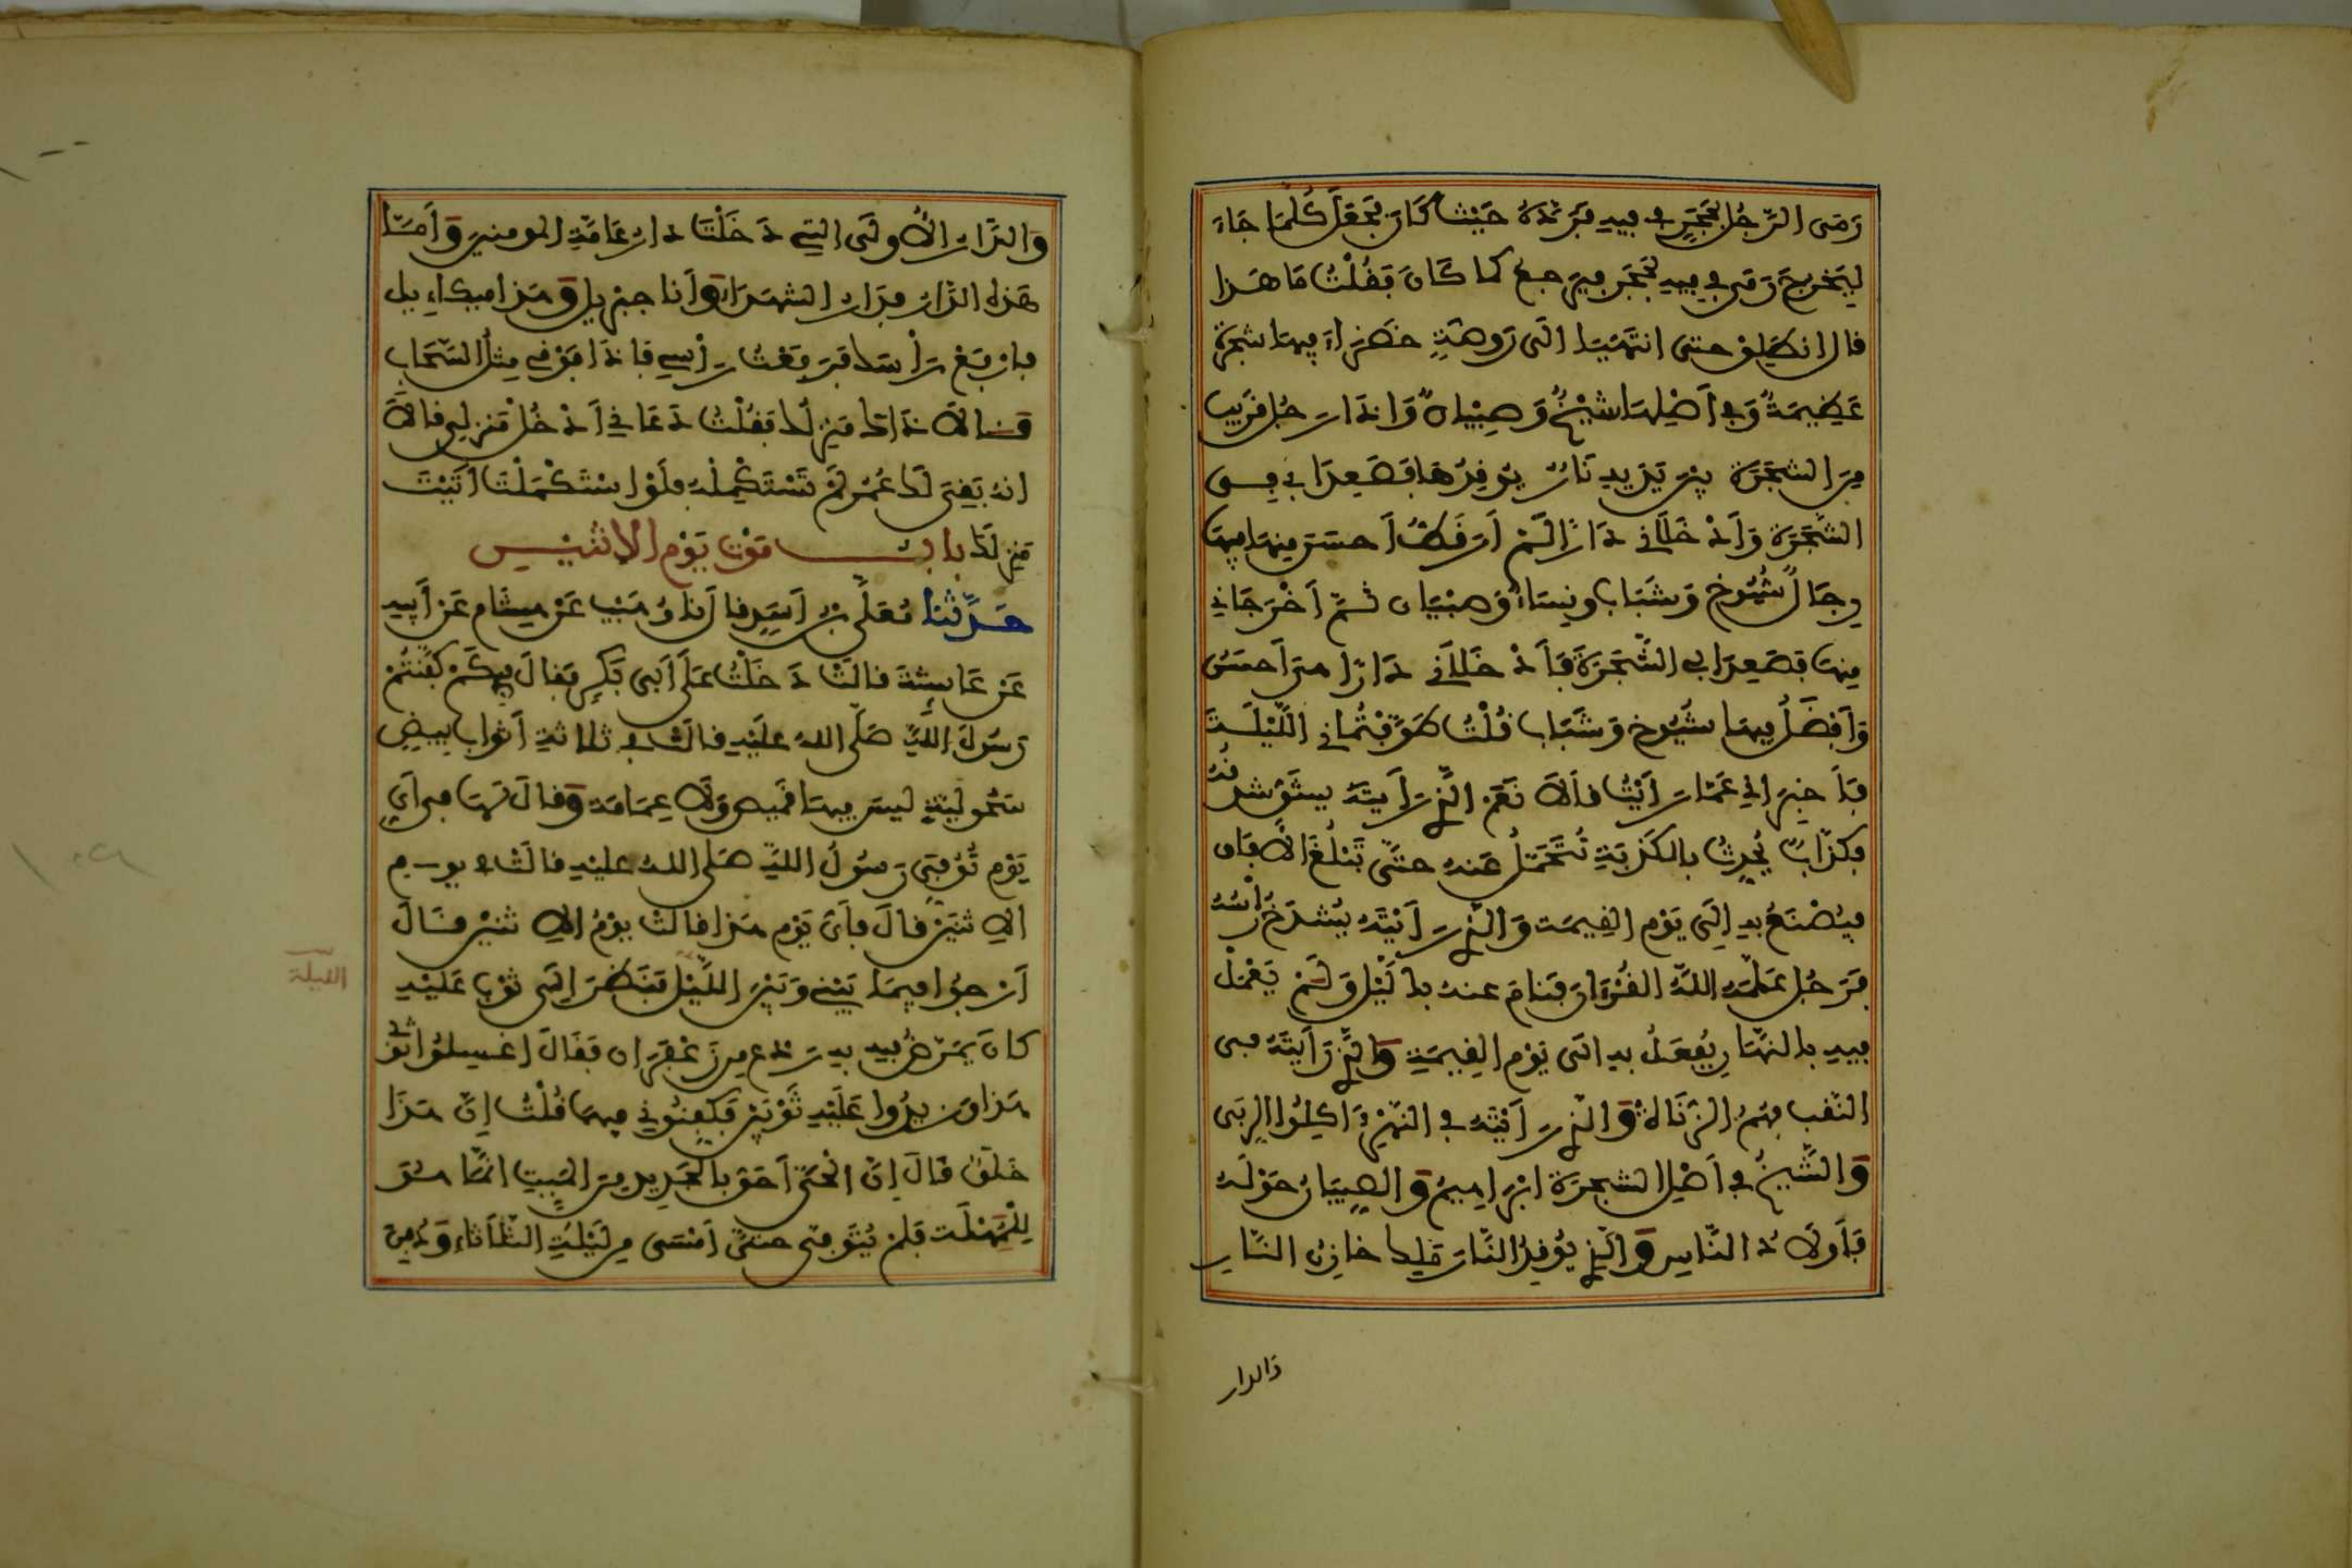 رَمَى الرَّجُلُ بِحَجَرٍ فِي فِيهِ فَرَدَّهُ حَيْثُ كَانَ فَجَعَلَ كُلَّمَا جَاءَ
لِيَخْرُجَ رَمَى فِي فِيهِ بِحَجَرٍ فَيَرْجِعُ كَمَا كَانَ فَقُلْتُ مَا هَذَا
قال انطلق حتى انتهينا الى رَوضَةٍ خضراء فيها شجرة
عَظِيمَةٌ وَفِي أَصْلِهَا شَيْخٌ وَصِبْيَانٌ وَإذَا رَجُل قَرِيب
مِنَ الشَّجَرَةِ بين يَدَيه نَارٌ يُوقِدُهَا فَصَعِدَا بِي فِي
الشَّجَرَةِ وَأَدْخَلَانِي دَارًا لَمْ أَرَ قَطُّ أَحسَنَ مِنهَا فِيهَا
رِجَالٌ شُيُوخ وَشَبَاب ونِسَاءٌ وَصبْيَان ثُمَّ أَخْرَجَانِي
مِنهَا فَصَعِدَا بِي الشَّجَرَةَ فَأَدْخَلَانِي دَارًا هي أَحسَنُ
وَأَفْضَلُ فِيهَا شُيُوخ وَشَبَاب قُلْتُ طَوَّفْتُمَانِي اللَّيْلَةَ
فَأَخبِرَانِي عَمَّا رَأَيْتُ قَالَا نَعَمْ الَّذِي رَأَيتَهُ يُشَقُّ شدقُهُ
فكَذَّابٌ يُحَدِّثُ بِالكَذبَةِ فتُحْمَلُ عَنهُ حتَّى تَبْلُغَ الآفَاق
فيُصْنَعُ بِهِ إِلَى يَوْمِ القِيمَة وَالَّذِي رَأَيْتَهُ يُشْدَخُ رَأْسُهُ
فَرَجُل عَلَّمَهُ اللَّهُ القُرْءَانَ فَنَامَ عنهُ بِاللَّيْلِ وَلَمْ يَعْمَلْ
فِيهِ بالنَّهَارِ يُفعَلُ بِهِ الَى يَوْمِ القِيمَةِ وَالَّذِي رَأَيتَهُ فِي
النَّقبِ فهُمُ الزُّنَاةُ وَالَّذِي رَأَيْتَهُ فِي النَّهْرِ ءَاكِلُوا الرِّبَى
وَالشَّيخُ فِي أَصْلِ الشجرَةِ ابْرَاهِيمُ وَالصِّبْيَانُ حَوْلَهُ
فَأَوْلَادُ النَّاسِ وَالَّذِي يُوقِدُ النَّارَ مَلِك خَازِنُ النَّارِ
والدار
وَالدَّارُ الأُولَى التِي دَخَلْتَ دَارُ عَامَّةِ المومنينَ وَأَمَّا
هَذِهِ الدَّارُ فدَارُ الشهَدَاءِ وَأَنَا جبْرِيل وَهَذا مِيكَاءِيل
فارفع رَأْسَكَ فَرَفَعْتُ رَأْسِي فَإِذَا فَوْقِي مِثْلُ السَّحَابِ
قَالَا ذَاكَ مَنزِلُكَ فَقُلْتُ دَعَانِي أَدْخُلْ مَنزِلِي قَالَا
انهُ بَقِيَ لَكَ عُمُرٌ لَمْ تَسْتَكْمِلْهُ فلَوْ اسْتَكْمَلْتَ أَتَيْتَ
مَنزِلَكَ باب مَوْت يَوْم الاثْنَيْنِ
حَدَّثَنَا مُعَلَّى بْنُ أَسَدٍ قال أَنَا وُهَيْب عَنْ هِشَام عَن أَبِيهِ
عَنْ عَايِشَةَ قالَتْ دَخَلْتُ عَلَى أَبِي بَكرٍ فقالَ في كَمْ كَفَّنتُمْ
رَسُولَ اللَّهِ صَلَّى اللهُ عليهِ قالَتْ في ثلاثَةِ أَثوَاب بِيضٍ
سَحُولِيَّةٍ لَيسَ فيهَا قَمِيص وَلا عِمَامَة وَقالَ لَهَا في أَيِّ
يَوْم تُوُفِّيَ رَسُولُ اللهِ صَلى اللهُ عليهِ قالَتْ في يوم
الاثنَيْنِ قالَ فأَيُّ يَوْم هَذا قالَتْ يوْمُ الاثنَيْنِ قَالَ
أَرْجُوا فِيمَا بَيْنِي وَبَيْنَ اللَّيْل فَنَظَرَ إِلَى ثَوْب عَلَيْهِ
الليلة
كانَ يُمَرَّضُ فِيهِ بِهِ رَدْع مِن زَعْفَرَان فَقَالَ اغسِلُوا ثَوْبي
هَذا وَزِيدُوا عَلَيهِ ثَوْبَيْنِ فَكَفِّنُونِي فِيهَا قُلْتُ إِنَّ هَذَا
خَلَقٌ قَالَ إِنَّ الْحَيَّ أَحَقُّ بِالجَدِيدِ مِنَ المَيِّتِ إنَّمَا هُوَ
لِلْمُهْلَةِ فَلَمْ يُتَوَفَّى حتَّى أَمْسَى مِن لَيْلَةِ الثُّلَاثَاءِ وَدُفِنَ